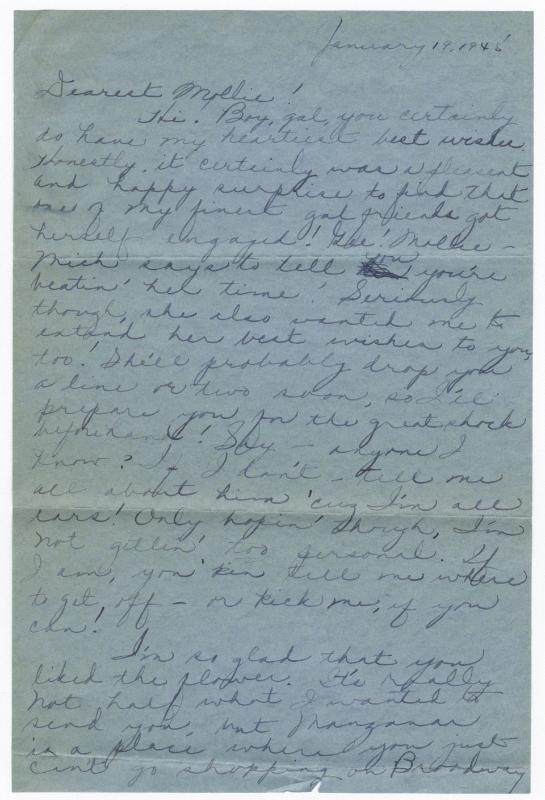 January 19, 1945
Dearest Mollie!
Hi! Boy, gal, you certainly
do have my heartiest best wishes.
Honestly, it certainly was a pleasant
and happy surprise to find that
one of my finest gal friends got
herself engaged! Gee! Mollie –
Mich says to tell you you're
beatin' her time! Seriously
though, she also wanted me to
extend her best wishes to you,
too! She'll probably drop you
a line or two soon, so I'll
prepare you for the great shock
beforehand! Say – anyone I
know? If I don't – tell me
all about him 'cuz I'm all
ears! Only hopin' though, I'm
not gettin' too personal. If
I am, you kin tell me where
to get off – or kick me, if you
can!
I'm so glad that you
liked the flower. It's really
not half what I wanted to
send you, but Manzanar
is a place where you just
can't go shopping on Broadway